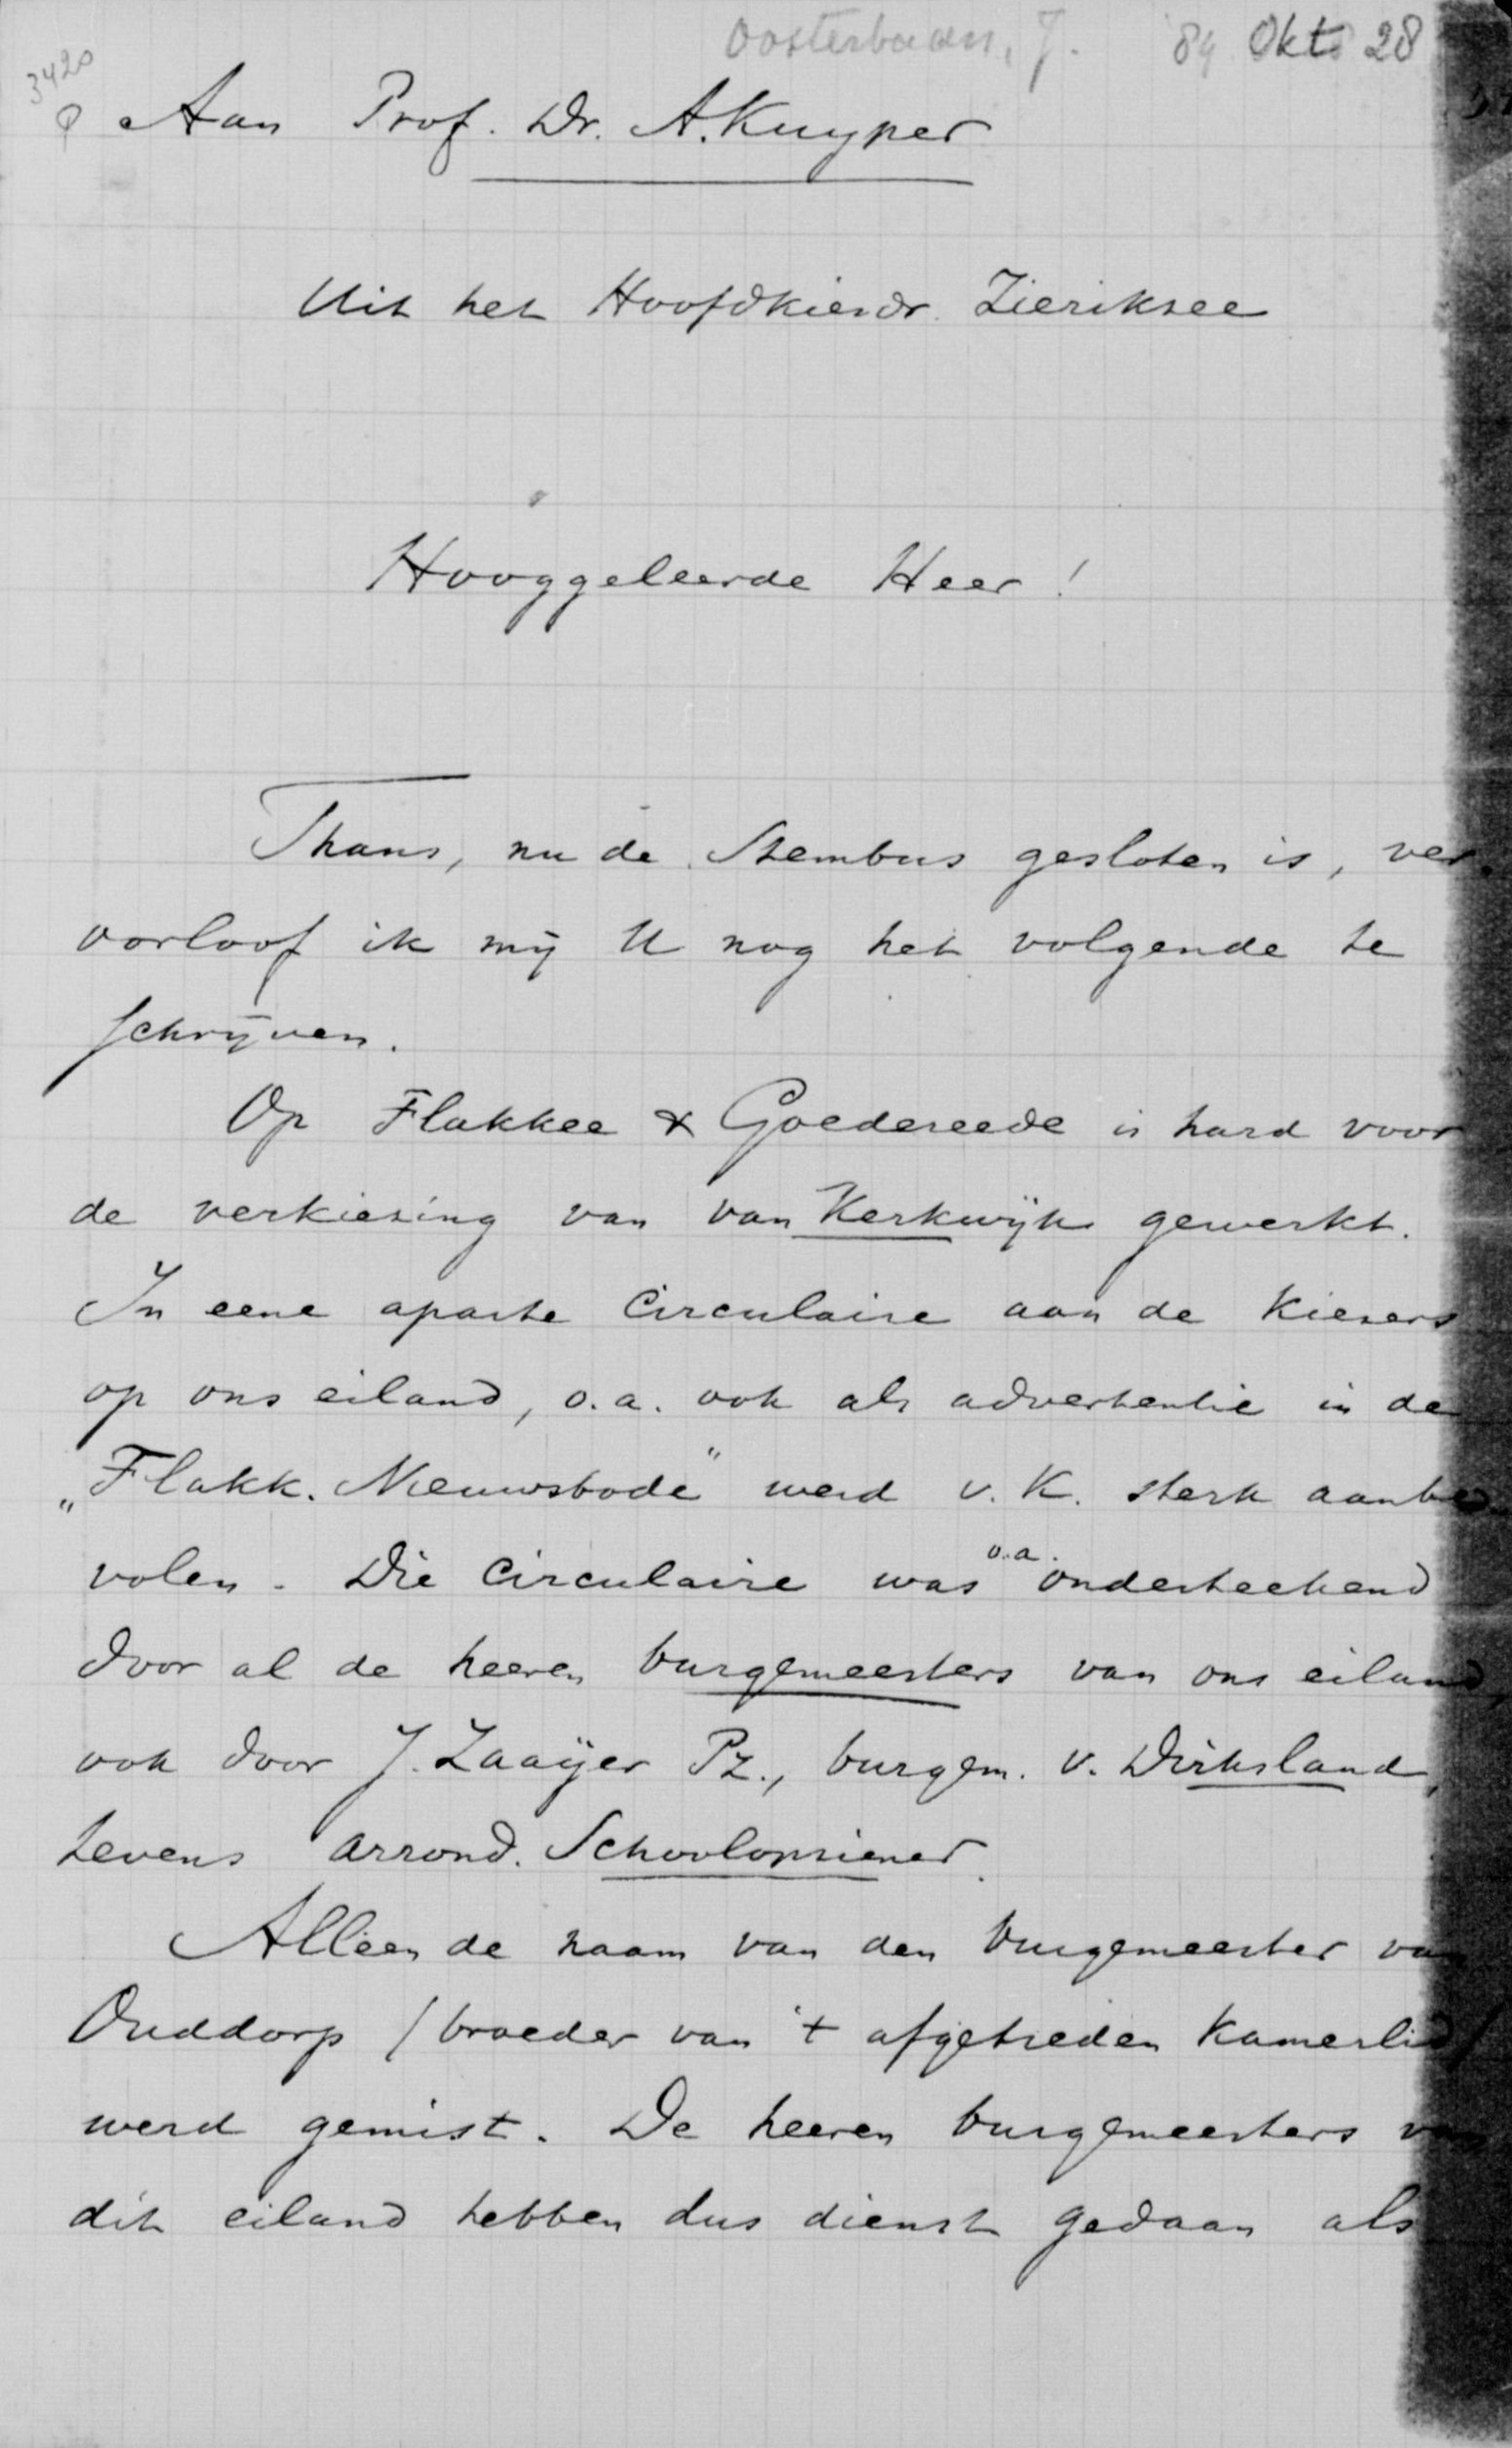 Oosterbaan, J. '84 Okt 28
3420
Aan Prof. Dr. A. Kuyper
Uit het Hoofdkiesdr. Zieriksee
Hooggeleerde Heer!
Thans, nu de Stembus gesloten is, ver-
oorloof ik mij U nog het volgende te
schrijven.
Op Flakkee & Goedereede is hard voor
de verkiezing van van Kerkwijk gewerkt.
In eene aparte Circulaire aan de Kiezers
op ons eiland, o.a. ook als advertentie in de
„Flakk. Nieuwsbode" werd v. K. sterk aanbe-
volen. Die Circulaire was o.a. onderteekend
door al de heeren burgemeesters van ons eiland,
ook door J. Zaaijer Pz., burgem. v. Dirksland,
tevens arrond. Schoolopziener.
Alléén de naam van den burgemeester van
Ouddorp (broeder van 't afgetreden Kamerlid)
werd gemist. De heeren burgemeesters van
dit eiland hebben dus dienst gedaan als